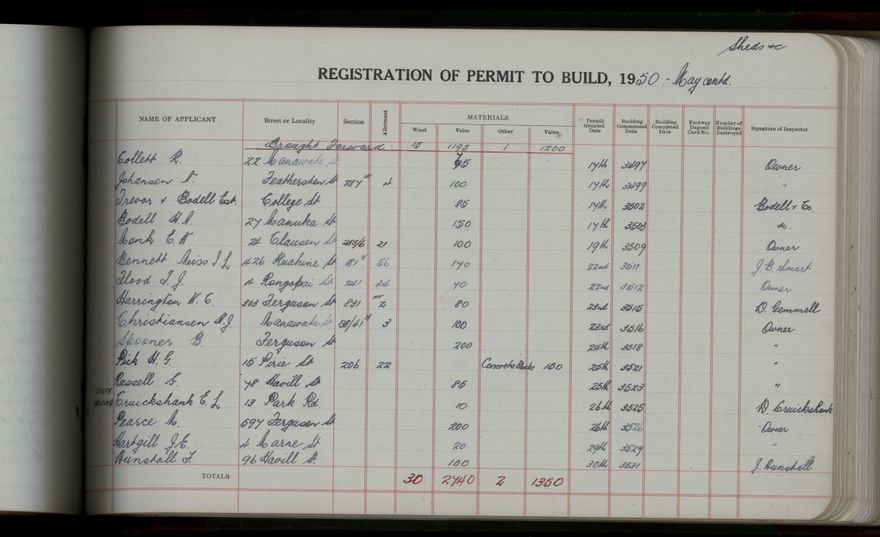 Sheds &c
REGISTRATION OF PERMIT TO BUILD, 1950 - May contd.
NAME OF APPLICANT Street or Locality Section Allotment MATERIALS Wood Value Other Value Permit Granted Date Building Commenced Date Building Completed Date Footway Deposit Card No. Number of Buildings Destroyed Signature of Inspector
Brought Forward 15 1195 1 1200
Collett R. 22 Manawatu St 17th 3497 Owner
Johanson St 287 4 100 17th 3499 "
Trevor & Bodell Est. College St 85 17th 3502 Bodell & Co.
Bodell 27 Manuka St 150 17th 3503 do.
Monk E. 24 Clausen St 21 100 19th 3509 Owner
Bennett Miss I L 426 Ruahine St 181 56 140 22nd 3511 J. B. Smart
Flood T. J. 4 Rongopai St 241 40 22nd 3512 Owner
Harrington W. C. 303 Ferguson St 831 2 80 23rd 3515 D. Gemmell
Christiansen Manawatu St 3 100 23rd 3516 Owner
Spooner B. Ferguson St 200 24th 3518 "
Pick H. G. 15 Pirie St 206 22 Concrete 150 25th 3521 "
Russell G. 78 Havill St 85 25th 3523 "
Cruickshank E. L 13 Park Rd. 10 26th 3525 D. Cruickshank
Pearce 597 Ferguson St 200 26th 3526 Owner
Hartgill J. E. 4 Marne St 20 29th 3529 "
Dunstall F. 96 Havill St. 100 30th 3531 J. Dunstall
TOTALS 30 2740 2 1350